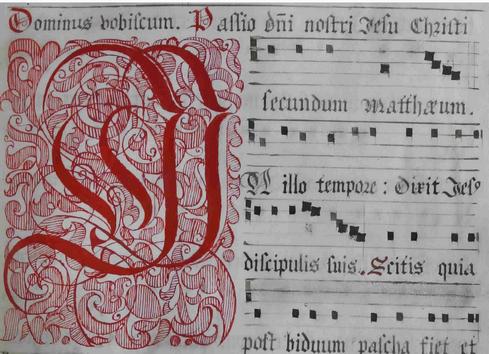 Dominus vobiscum. Passio dñi nostri Jesu Christi
secundum Matthæum.
IN illo tempore : Dixit Jesꝰ
discipulis suis. Scitis quia
post biduum pascha fiet et